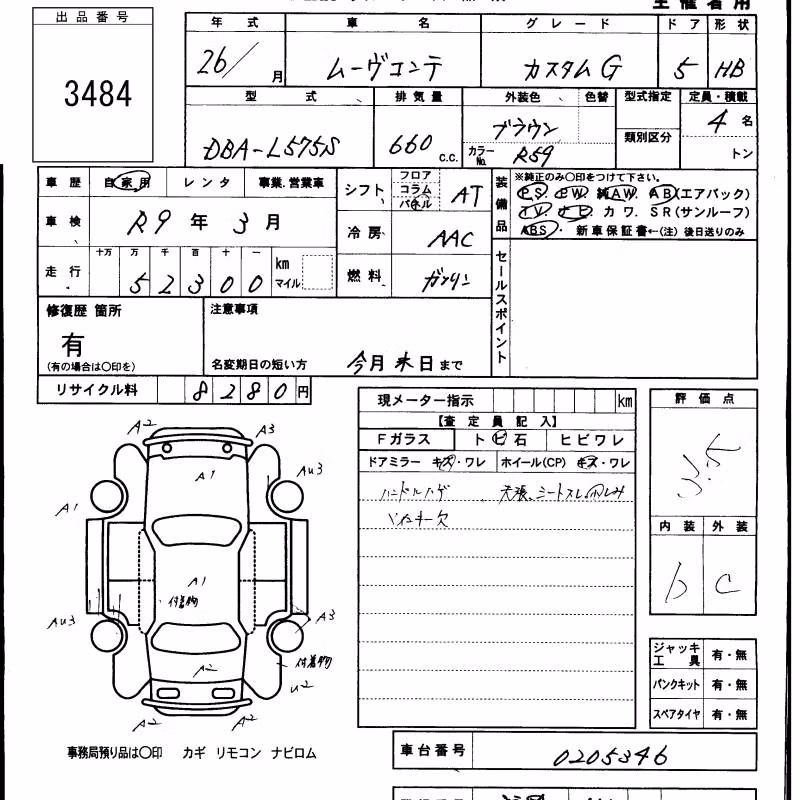 主催者用
出品番号
3484
年式 車名 グレード ドア 形状
26/ 月 ムーヴコンテ カスタムG 5 HB
型式 排気量 外装色 色替 型式指定 定員・積載
DBA-L575S 660 c.c. ブラウン 4名
カラーNo. R59 類別区分 トン
車歴 自家用 レンタ 事業.営業車
車検 R9年 3月
走行 十万 万 千 百 十 一
52300 km マイル
シフト フロア コラム パネル AT
冷房 AAC
燃料 ガソリン
装備品 ※純正のみ〇印をつけて下さい。
P.S. P.W. 純AW. AB(エアバック)
TV. ナビ. カワ. SR(サンルーフ)
ABS. 新車保証書←(注) 後日送りのみ
セールスポイント
修復歴 箇所
有
(有の場合は〇印を)
注意事項
名変期日の短い方 今月末日まで
リサイクル料 8280円
現メーター指示 km
【査定員記入】
Fガラス トビ石 ヒビワレ
ドアミラー キズ・ワレ ホイール(CP) キズ・ワレ
ハンドルハゲ 天張、シートスレ
評価点
3.5
内装 外装
b C
ジャッキ 工具 有・無
パンクキット 有・無
スペアタイヤ 有・無
A2 A3
A1 AU3
A1
A1
付着物
AU3 A3
A2 付着物
U2
A2 A2
事務局預り品は〇印 カギ リモコン ナビロム
車台番号 0205346